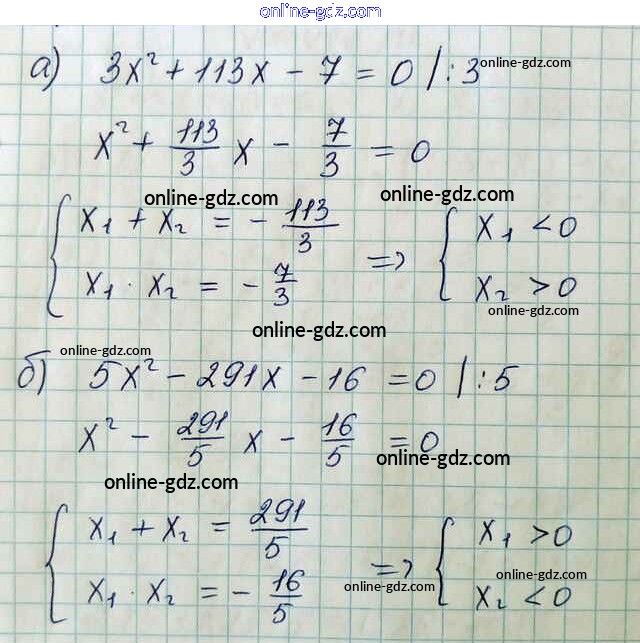 online-gdz.com
а) 3x² + 113x - 7 = 0 | : 3 online-gdz.com
x² + 113/3 x - 7/3 = 0
online-gdz.com online-gdz.com
{ x₁ + x₂ = - 113/3
x₁ · x₂ = - 7/3
=> { x₁ < 0
x₂ > 0
online-gdz.com
online-gdz.com
online-gdz.com
б) 5x² - 291x - 16 = 0 | : 5
x² - 291/5 x - 16/5 = 0
online-gdz.com
online-gdz.com
{ x₁ + x₂ = 291/5
x₁ · x₂ = - 16/5
=> { x₁ > 0
x₂ < 0
online-gdz.com
online-gdz.com